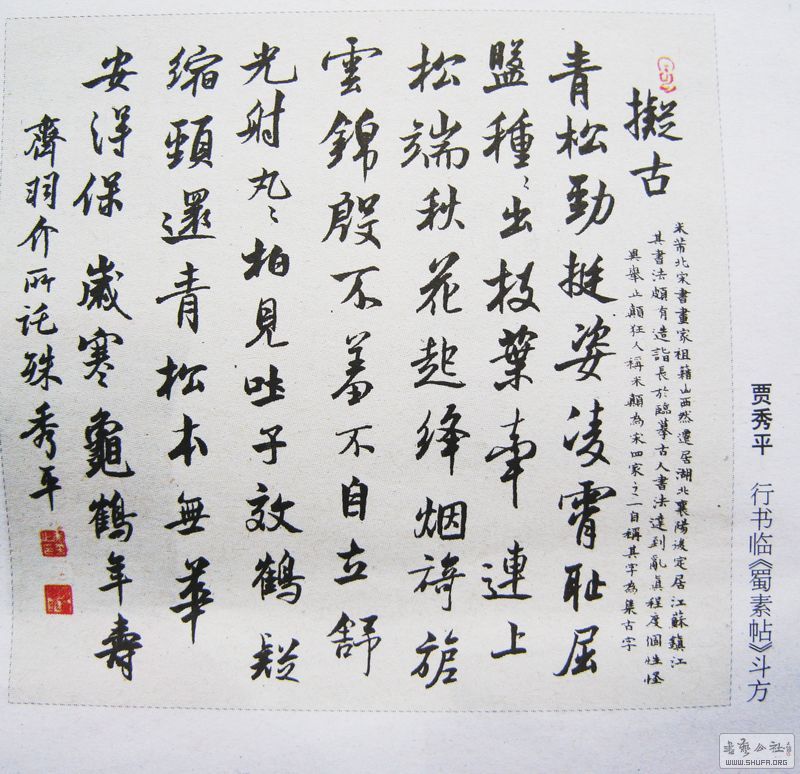 擬古
米芾北宋書畫家祖籍山西然遷居湖北襄陽後定居江蘇鎮江
其書法頗有造詣長於臨摹古人書法達到亂真程度個性怪
異舉止顛狂人稱米顛為宋四家之一自稱其字為集古字
青松勁挺姿凌霄耻屈
盤種〻出枝葉牽連上
松端秋花起绛烟旖旎
雲錦殷不羞不自立舒
光射丸〻柏見吐子效鶴疑
縮頸還青松本無華
安得保歲寒龜鶴年壽
齊羽介所託殊秀平
贾秀平 行书临《蜀素帖》斗方
書藝公社
WWW.SHUFA.ORG